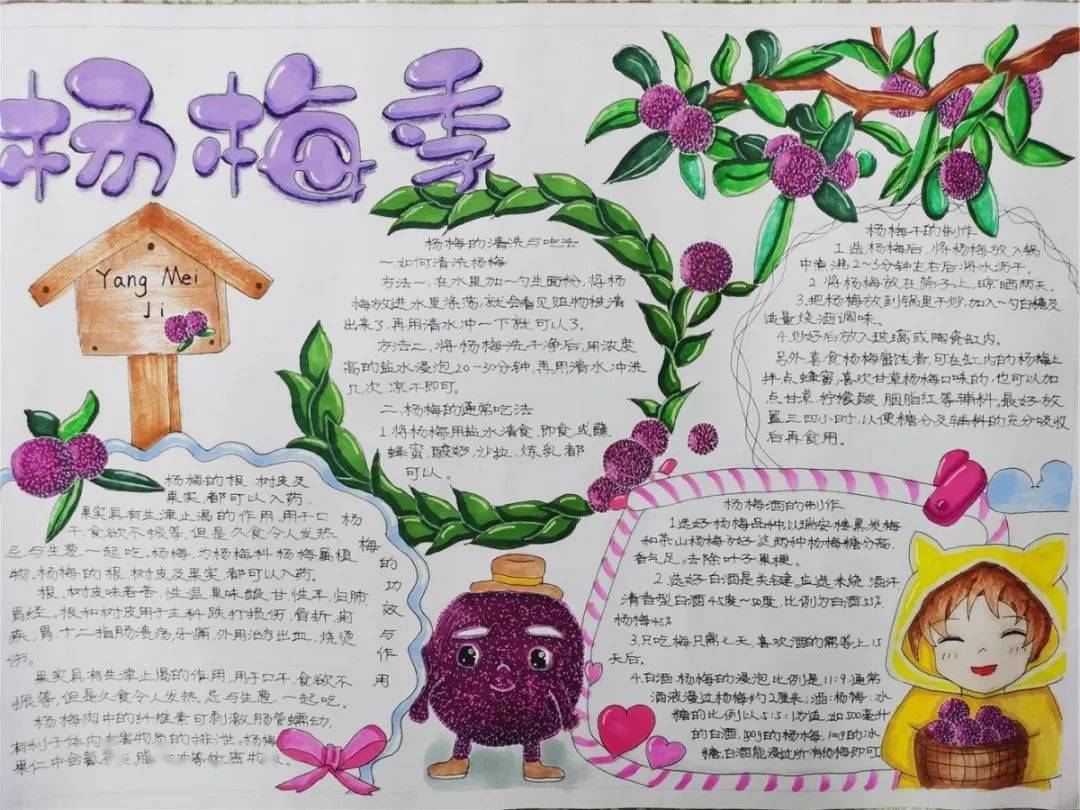 杨梅季
Yang Mei
Ji
杨梅的清洗与吃法
一如何清洗杨梅
方法一，在水里加一勺生面粉，将杨
梅放进水里涤荡，就会看见脏物被清
出来了，再用清水冲一下就可以了。
方法二，将杨梅洗干净后，用浓度
高的盐水浸泡20-30分钟，再用清水冲洗
几次，凉干即可。
二、杨梅的通常吃法
1.将杨梅用盐水清食，即食或蘸
蜂蜜，酸奶，沙拉，炼乳都
可以。
杨梅干的制作
1.选杨梅后，将杨梅放入锅
中煮沸2~3分钟左右后将水沥干。
2.将杨梅放在筛子上，晾晒两天。
3.把杨梅放到锅里干炒，加入一勺白糖及
适量烧酒调味。
4.炒好后放入玻璃或陶瓷缸内。
另外，喜食杨梅蜜饯者，可在缸内的杨梅上
拌点蜂蜜，喜欢甘草杨梅口味的，也可以加
点甘草，柠檬酸，胭脂红等辅料。最好放
置三四小时，以便糖分及辅料的充分吸收
后再食用。
杨梅的功效与作用
杨梅的根，树皮及
果实都可以入药，
果实具有生津止渴的作用，用于口
干，食欲不振等，但是久食令人发热，
忌与生葱一起吃。杨梅，为杨梅科杨梅属植
物。杨梅的根、树皮及果实都可以入药。
根、树皮味者苦，性温，果味酸、甘性平，归肺
胃经。根和树皮用于主料跌打损伤，骨折，痢
疾，胃，十二指肠溃疡，牙痛，外用治疗出血，烧烫
伤。
果实具有生津止渴的作用，用于口干，食欲不
振等，但是久食令人发热，忌与生葱一起吃。
杨梅肉中的纤维素可刺激肠管蠕动，
有利于体内有害物质的排泄。杨梅
果仁中含
杨梅酒的制作
1.选好杨梅品种，以瑞安高楼黑炭梅
和茶山杨梅为好，这两种杨梅糖分高，
香气足。去除叶子果梗。
2.选好白酒是关键，应选米烧酒汗
清香型白酒45度~50度，比例为白酒55%
杨梅45%
3.只吃梅只需七天，喜欢酒的需等上15
天后。
4.白酒、杨梅的浸泡比例是11:9，通常
酒液漫过杨梅约2厘米；酒：杨梅：冰
糖的比例以5:5:1为值，如500毫升
的白酒，500g的杨梅，100g的冰
糖，白酒能浸过所有杨梅即可